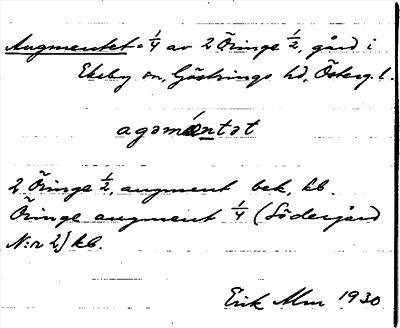 Augmentet = 1/4 av 2 Öringe 1/2, gård i
Ekeby sn, Göstrings hd, Österg. l.
agəmǽntət
2 Öringe 1/2, augment bek, kb.
Öringe augment 1/4 (Södergård
N:r 2) kb.
Erik Alm 1930